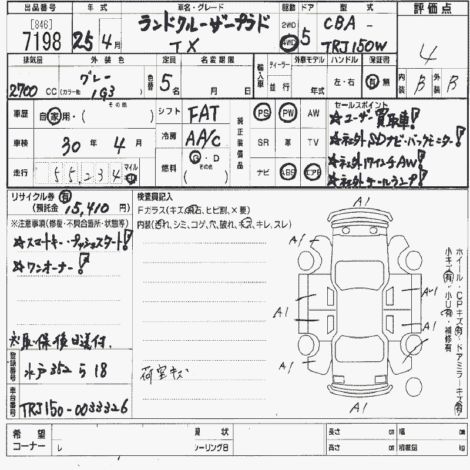 出品番号 年式 車名・グレード 駆動 ドア 型式 評価点
[846]
7198 25年4月 ランドクルーザープラド TX 2WD 4WD 5 CBA - TRJ150W 4
排気量 外装色 色替 定員 名変期限 輸入車 ディーラー 並行 外車モデル ハンドル 左・右 有 無 内装 B 外装 B
2700 CC グレー (カラー他) 1G3 5名 月 日
車歴 自家用・(その他) シフト FAT 純正装備品 PS PW AW
車検 30年4月 冷房 AA/C SR 革 TV
走行 55,234 マイル km 燃料 G・D その他 ナビ ABS エアB
セールスポイント
★ユーザー買取車!
★社外SDナビ・バックモニター!
★社外17インチAW!
★社外テールランプ!
リサイクル券 有 (預託金 15,410円)
※注意事項(修復・不具合箇所・状態等)
★スマートキー・プッシュスタート!
★ワンオーナー!
取・保 後日送付
登録番号 水戸352 ら 18
車台番号 TRJ150-0033326
検査員記入
Fガラス(キズ・飛石、ヒビ割、×要)
内装(汚れ、シミ、コゲ、穴、破れ、キズ、キレ、スレ)
荷室キズ
A1 A1
A1 A1
A1 A1
A1 A1
ホイール・CPキズ(有)・ドアミラーキズ(有)
小キズ(有)・小U(有)・補修有
希望コーナー レ 状 シーリングB 長さ cm 幅 cm 高さ cm 積載数 kg